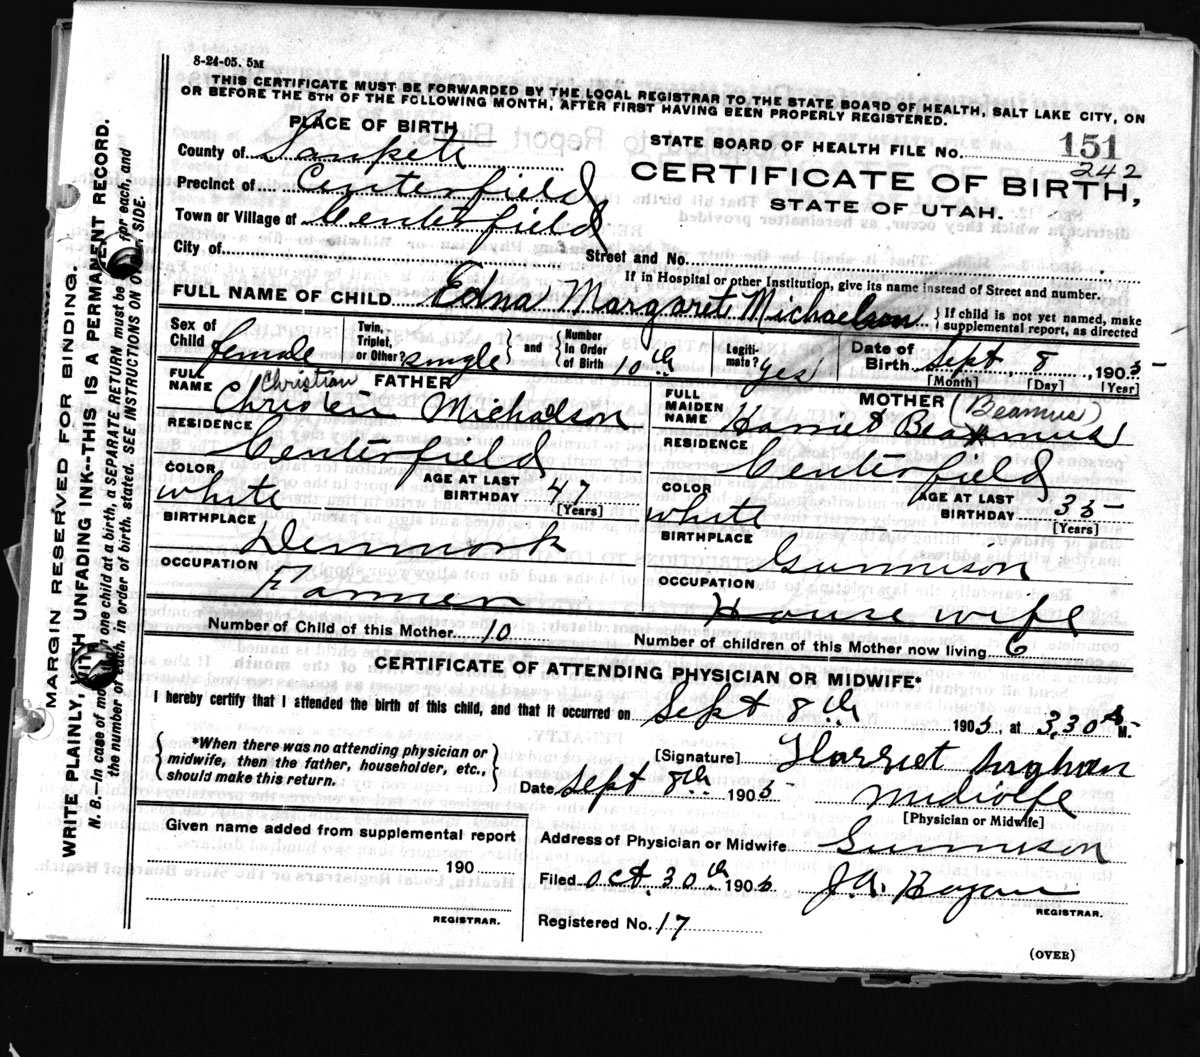 8-24-05. 5M
THIS CERTIFICATE MUST BE FORWARDED BY THE LOCAL REGISTRAR TO THE STATE BOARD OF HEALTH, SALT LAKE CITY, ON
OR BEFORE THE 5TH OF THE FOLLOWING MONTH, AFTER FIRST HAVING BEEN PROPERLY REGISTERED.
PLACE OF BIRTH
County of Sanpete
Precinct of Centerfield
Town or Village of Centerfield
City of
STATE BOARD OF HEALTH FILE No. 151
242
CERTIFICATE OF BIRTH,
STATE OF UTAH.
Street and No.
If in Hospital or other Institution, give its name instead of Street and number.
FULL NAME OF CHILD Edna Margaret Michaelson { If child is not yet named, make supplemental report, as directed
Sex of Child female
Twin, Triplet, or Other? single } and { Number In Order of Birth 10th
Legitimate? yes
Date of Birth Sept. 8, 1905
[Month] [Day] [Year]
FATHER
FULL NAME Christen Michaelson
Christian
RESIDENCE
Centerfield
COLOR white
AGE AT LAST BIRTHDAY 47
[Years]
BIRTHPLACE
Denmark
OCCUPATION
Farmer
MOTHER (Beamus)
FULL MAIDEN NAME Harriet Beamus
RESIDENCE
Centerfield
COLOR white
AGE AT LAST BIRTHDAY 35
[Years]
BIRTHPLACE
Gunnison
OCCUPATION
House wife
Number of Child of this Mother 10
Number of children of this Mother now living 6
CERTIFICATE OF ATTENDING PHYSICIAN OR MIDWIFE*
I hereby certify that I attended the birth of this child, and that it occurred on Sept 8th 1905, at 3.30 A M.
{ *When there was no attending physician or midwife, then the father, householder, etc., should make this return. }
[Signature] Harriet
Date Sept 8th 1905 Midwife
[Physician or Midwife]
Address of Physician or Midwife Gunnison
Filed Oct. 30th 1905 J.A. Hagan
REGISTRAR.
Registered No. 17
Given name added from supplemental report
190
REGISTRAR.
(OVER)
MARGIN RESERVED FOR BINDING.
WRITE PLAINLY, WITH UNFADING INK--THIS IS A PERMANENT RECORD.
N. B.--In case of more than one child at a birth, a SEPARATE RETURN must be made for each, and
the number of each, in order of birth, stated. SEE INSTRUCTIONS ON OTHER SIDE.